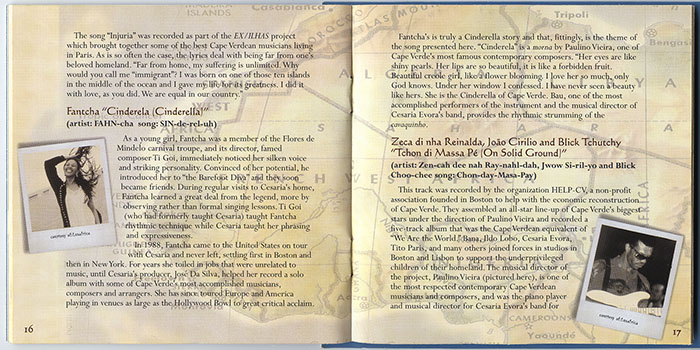 The song "Injuria" was recorded as part of the EX/ILHAS project
which brought together some of the best Cape Verdean musicians living
in Paris. As is so often the case, the lyrics deal with being far from one's
beloved homeland. "Far from home, my suffering is unlimited. Why
would you call me "immigrant"? I was born on one of those ten islands
in the middle of the ocean and I gave my life for its greatness. I did it
with love, as you did. We are equal in our country."
Fantcha "Cinderela (Cinderella)"
(artist: FAHN-cha song: SIN-de-rel-uh)
As a young girl, Fantcha was a member of the Flores de
Mindelo carnival troupe, and its director, famed
composer Ti Goi, immediately noticed her silken voice
and striking personality. Convinced of her potential, he
introduced her to "the Barefoot Diva" and they soon
became friends. During regular visits to Cesaria's home,
Fantcha learned a great deal from the legend, more by
observing rather than formal singing lessons. Ti Goi
(who had formerly taught Cesaria) taught Fantcha
rhythmic technique while Cesaria taught her phrasing
and expressiveness.
In 1988, Fantcha came to the United States on tour
with Cesaria and never left, settling first in Boston and
then in New York. For years she toiled in jobs that were unrelated to
music, until Cesaria's producer, José Da Silva, helped her record a solo
album with some of Cape Verde's most accomplished musicians,
composers and arrangers. She has since toured Europe and America
playing in venues as large as the Hollywood Bowl to great critical acclaim.
courtesy africassociated
16
Fantcha's is truly a Cinderella story and that, fittingly, is the theme of
the song presented here. "Cinderela" is a morna by Paulino Vieira, one of
Cape Verde's most famous contemporary composers. "Her eyes are like
shiny pearls. Her lips are so beautiful, it is like a forbidden fruit.
Beautiful creole girl, like a flower blooming. I love her so much, only
God knows. Under her window I confessed. I have never seen a beauty
like hers. She is the Cinderella of Cape Verde. Bau, one of the most
accomplished performers of the instrument and the musical director of
Cesaria Evora's band, provides the rhythmic strumming of the
cavaquinho.
Zeca di nha Reinalda, João Cirilio and Blick Tchutchy
"Tchon di Massa Pé (On Solid Ground)"
(artist: Zen-cah dee nah Ray-nahl-dah, Jwow Si-ril-yo and Blick
Choo-chee song: Chon-day-Masa-Pay)
This track was recorded by the organization HELP-CV, a non-profit
association founded in Boston to help with the economic reconstruction
of Cape Verde. They assembled an all-star line-up of Cape Verde's biggest
stars under the direction of Paulino Vieira and recorded a
five-track album that was the Cape Verdean equivalent of
"We Are the World." Bana, Ildo Lobo, Cesaria Evora,
Tito Paris, and many others joined forces in studios in
Boston and Lisbon to support the underprivileged
children of their homeland. The musical director of
the project, Paulino Vieira (pictured here), is one of
the most respected contemporary Cape Verdean
musicians and composers, and was the piano player
and musical director for Cesaria Evora's band for
17
MADEIRA
ISLANDS
Casablanca
MOROCCO
Tripoli
Bengasi
CAMEROONS
Yaoundé